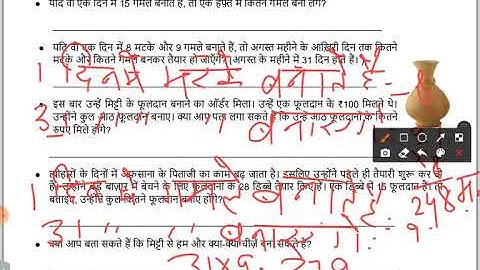 यदि वो एक दिन में 15 गमले बनाते हैं, तो एक हफ़्ते में कितने गमले बना लेंगे?
यदि वो एक दिन में 8 मटके और 9 गमले बनाते हैं, तो अगस्त महीने के आख़िरी दिन तक कितने
मटके और कितने गमले बनकर तैयार हो जाएँगे? (अगस्त के महीने में 31 दिन होते हैं।
1 दिन में मटके बनाते हैं - 8
इस बार उन्हें मिट्टी के फूलदान बनाने का ऑर्डर मिला। उन्हें एक फूलदान के ₹100 मिलते थे।
उन्होंने कुल आठ फूलदान बनाए। क्या आप पता लगा सकते हैं कि उन्हें आठ फूलदानों के कितने
रुपए मिले होंगे?
31 " " " बनाएंगे
त्योहारों के दिनों में अफ़साना के पिताजी का काम बढ़ जाता है। इसलिए उन्होंने पहले ही तैयारी शुरू कर दी
है। उन्होंने बड़े बाज़ार में बेचने के लिए फूलदानों के 28 डिब्बे तैयार किए हैं। एक डिब्बे में 15 फूलदान हैं। तो
बताइए, उन्होंने कुल कितने फूलदान बनाए होंगे?
1 दिन में गमले बनाते हैं
248 म
9
31 " " बनाएंगे
क्या आप बता सकते हैं कि मिट्टी से हम और क्या-क्या चीज़ें बना सकते हैं?
31 x 9